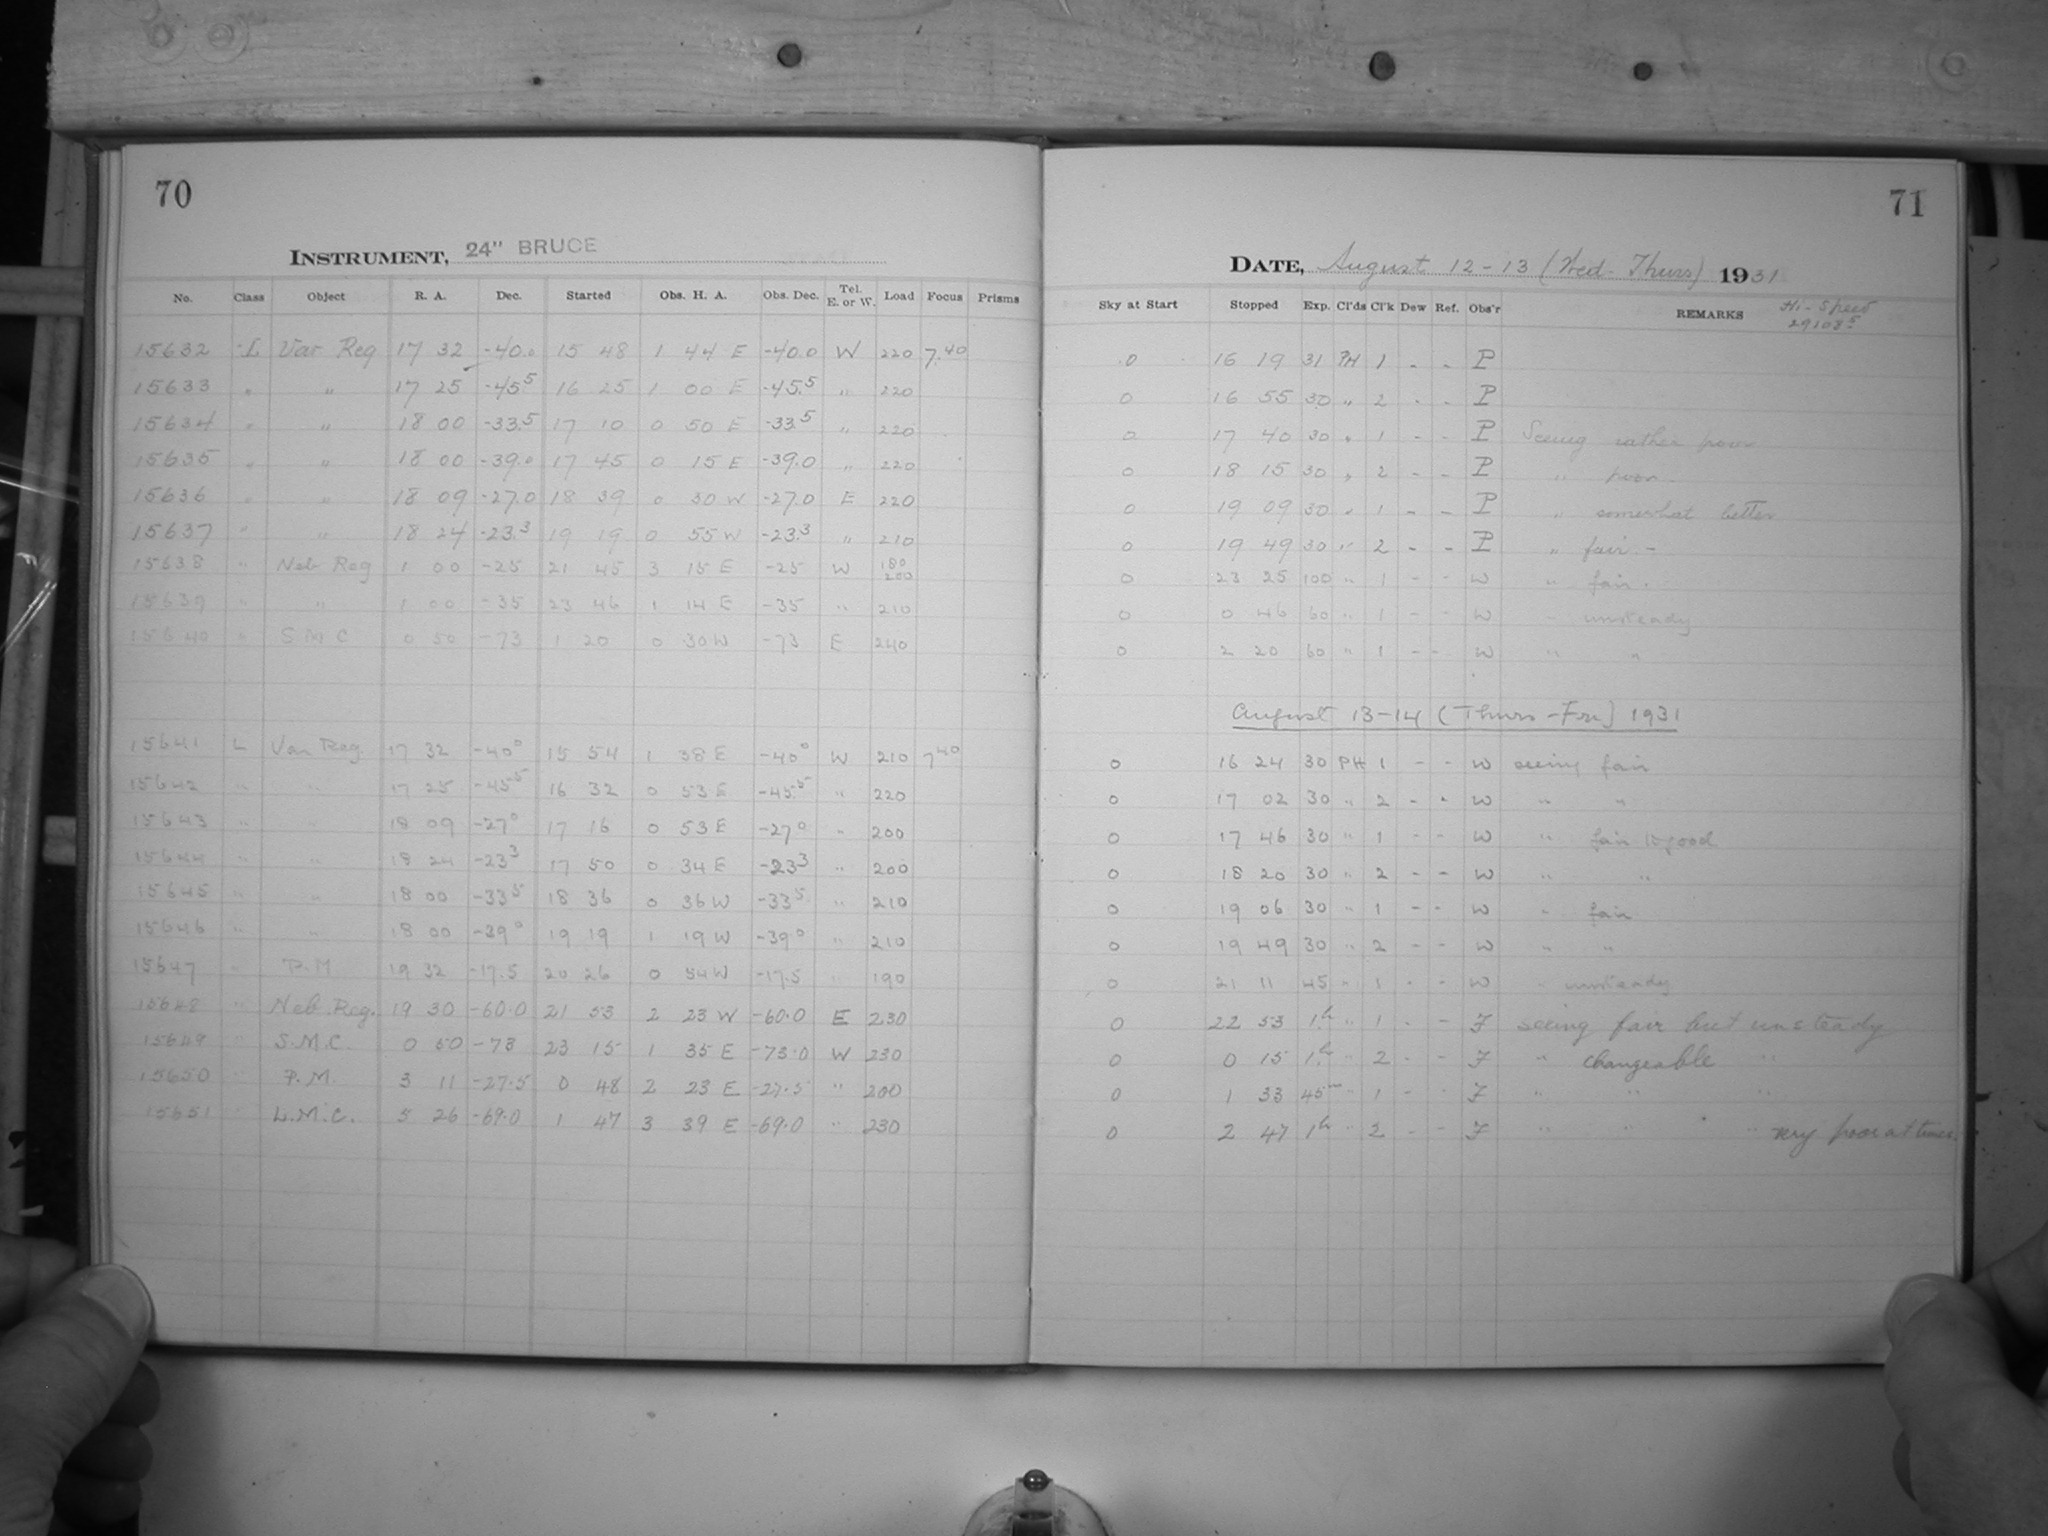 70
INSTRUMENT, 24" BRUCE
No. Class Object R. A. Dec. Started Obs. H. A. Obs. Dec. Tel. E. or W. Load Focus Prisms
15632 I Var Reg 17 32 -40.0 15 48 1 44 E -40.0 W 220 7.40
15633 " " 17 25 -45.5 16 25 1 00 E -45.5 " 220
15634 " " 18 00 -33.5 17 10 0 50 E -33.5 " 220
15635 " " 18 00 -39.0 17 45 0 15 E -39.0 " 220
15636 " " 18 09 -27.0 18 39 0 30 W -27.0 E 220
15637 " " 18 24 -23.3 19 19 0 55 W -23.3 " 210
15638 " Neb Reg 1 00 -25 21 45 3 15 E -25 W 180 200
15639 " " 1 00 -35 23 46 1 14 E -35 " 210
15640 " S M C 0 50 -73 1 20 0 30 W -73 E 240
15641 L Var Reg. 17 32 -40⁰ 15 54 1 38 E -40⁰ W 210 7⁴⁰
15642 " " 17 25 -45⁵ 16 32 0 53 E -45⁵ " 220
15643 " " 18 09 -27⁰ 17 16 0 53 E -27⁰ " 200
15644 " " 18 24 -23³ 17 50 0 34 E -23³ " 200
15645 " " 18 00 -33⁵ 18 36 0 36 W -33⁵ " 210
15646 " " 18 00 -39⁰ 19 19 1 19 W -39⁰ " 210
15647 " P.M. 19 32 -17.5 20 26 0 54 W -17.5 " 190
15648 " Neb. Reg. 19 30 -60.0 21 53 2 23 W -60.0 E 230
15649 " S.M.C. 0 50 -73 23 15 1 35 E -73.0 W 230
15650 " P.M. 3 11 -27.5 0 48 2 23 E -27.5 " 200
15651 " L.M.C. 5 26 -69.0 1 47 3 39 E -69.0 " 230
71
DATE, August 12-13 (Wed-Thurs) 1931
Sky at Start Stopped Exp. Cl'ds Cl'k Dew Ref. Obs'r REMARKS Hi-Speed
29108⁵
0 16 19 31 PH 1 - - P
0 16 55 30 " 2 - - P
0 17 40 30 " 1 - - P Seeing rather poor
0 18 15 30 " 2 - - P " poor.
0 19 09 30 " 1 - - P " somewhat better
0 19 49 30 " 2 - - P " fair -
0 23 25 100 " 1 - - W " fair.
0 0 46 60 " 1 - - W " unsteady
0 2 20 60 " 1 - - W " "
August 13-14 (Thurs-Fri) 1931
0 16 24 30 PH 1 - - W seeing fair
0 17 02 30 " 2 - - W " "
0 17 46 30 " 1 - - W " fair to good
0 18 20 30 " 2 - - W " "
0 19 06 30 " 1 - - W " fair
0 19 49 30 " 2 - - W " "
0 21 11 45 " 1 - - W " unsteady
0 22 53 1h " 1 - - F seeing fair but unsteady
0 0 15 1h " 2 - - F " changeable "
0 1 33 45m " 1 - - F " " "
0 2 47 1h " 2 - - F " " " very poor at times.